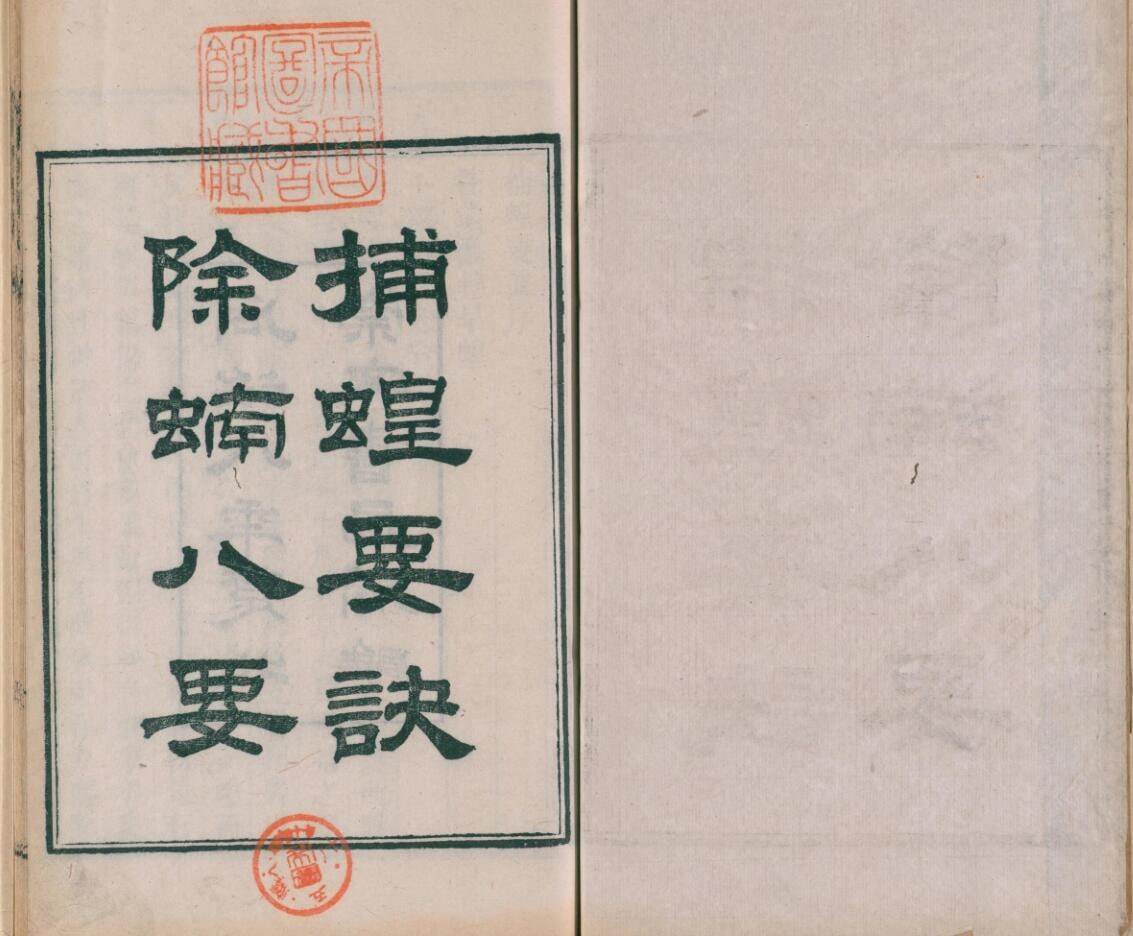 捕蝗要訣
除蝻八要
帝國
圖書
館藏